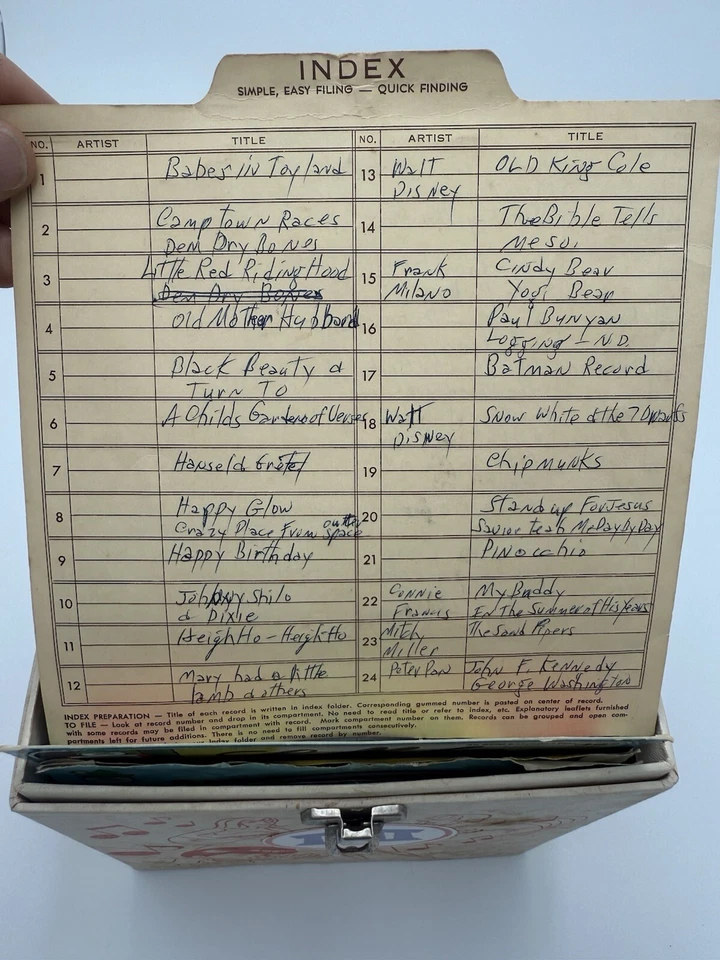 INDEX
SIMPLE, EASY FILING — QUICK FINDING
NO. ARTIST TITLE NO. ARTIST TITLE
1 Babes in Toyland
2 Camp Town Races
Dem Dry Bones
3 Little Red Riding Hood
Dem Dry Bones
4 Old Mother Hubbard
5 Black Beauty &
Turn To
6 A Childs Garden of Verses
7 Hansel & Gretel
8 Happy Glow
Crazy Place From outter
space
9 Happy Birthday
10 Johnny Shilo
& Dixie
11 Heigh Ho - Heigh Ho
12 Mary had a little
lamb & others
13 Walt OLD King Cole
Disney
14 The Bible Tells
Me So,
15 Frank Cindy Bear
Milano Yogi Bear
16 Paul Bunyan
Logging - N.D.
17 Batman Record
18 Walt Snow White & the 7 Dwarfs
Disney
19 Chipmunks
20 Stand up For Jesus
Savior Teah Me Day By Day
21 Pinocchio
22 Connie My Buddy
Francis In The Summer of His Years
23 Mitch The Sand Pipers
Miller
24 Peter Pan John F. Kennedy
George Washington
INDEX PREPARATION — Title of each record is written in index folder. Corresponding gummed number is pasted on center of record.
TO FILE — Look at record number and drop in its compartment. No need to read title or refer to index, etc. Explanatory leaflets furnished
with some records may be filed in compartment with record. Mark compartment number on them. Records can be grouped and open com-
partments left for future additions. There is no need to fill compartments consecutively.
index folder and remove record by number.